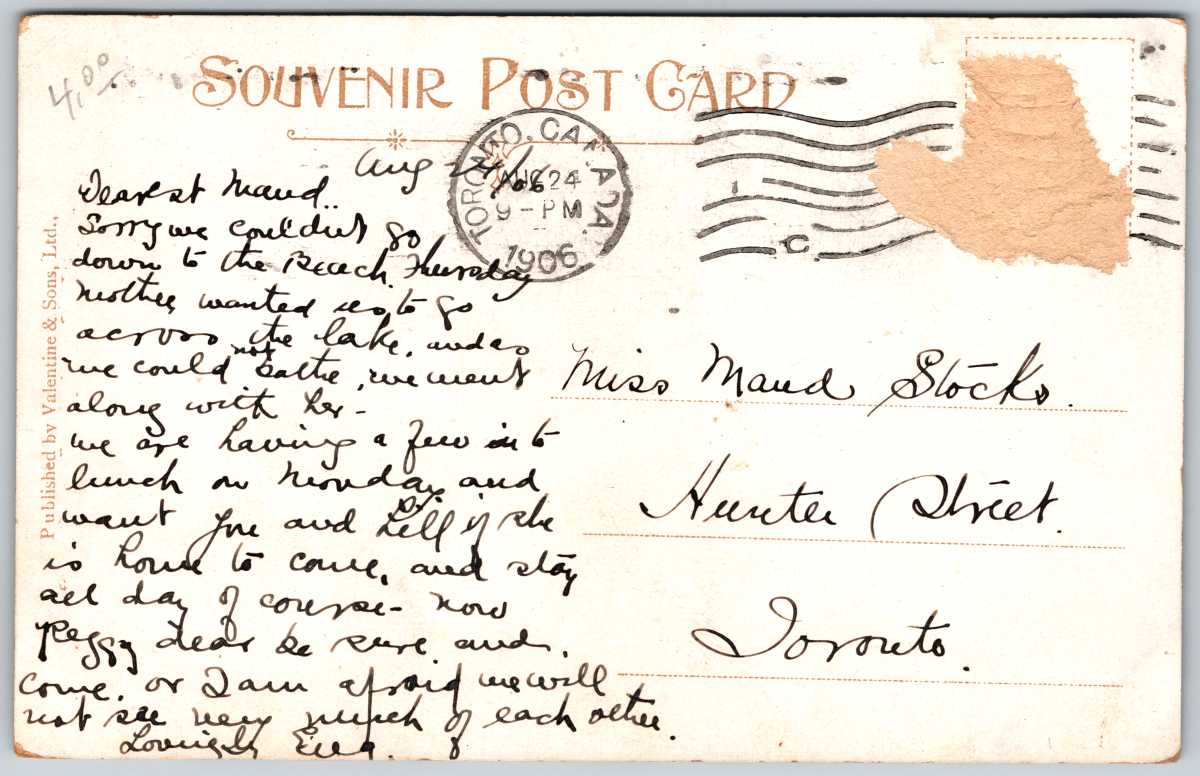 4.00
SOUVENIR POST CARD
TORONTO, CANADA.
AUG 24
9-PM
1906
C
Published by Valentine & Sons, Ltd.,
Aug 24/06
Dearest Maud..
Sorry we couldn't go
down to the Beach Thursday
Mother wanted us to go
across the lake, and as
we could not bathe, we went
along with her-
we are having a few in to
lunch on Monday and
want you and Lill if she
is home to come, and stay
all day of course- now
Peggy dear be sure and
come, or I am afraid we will
not see very much of each other.
Lovingly
Miss Maud Stocks.
Hunter Street.
Toronto.